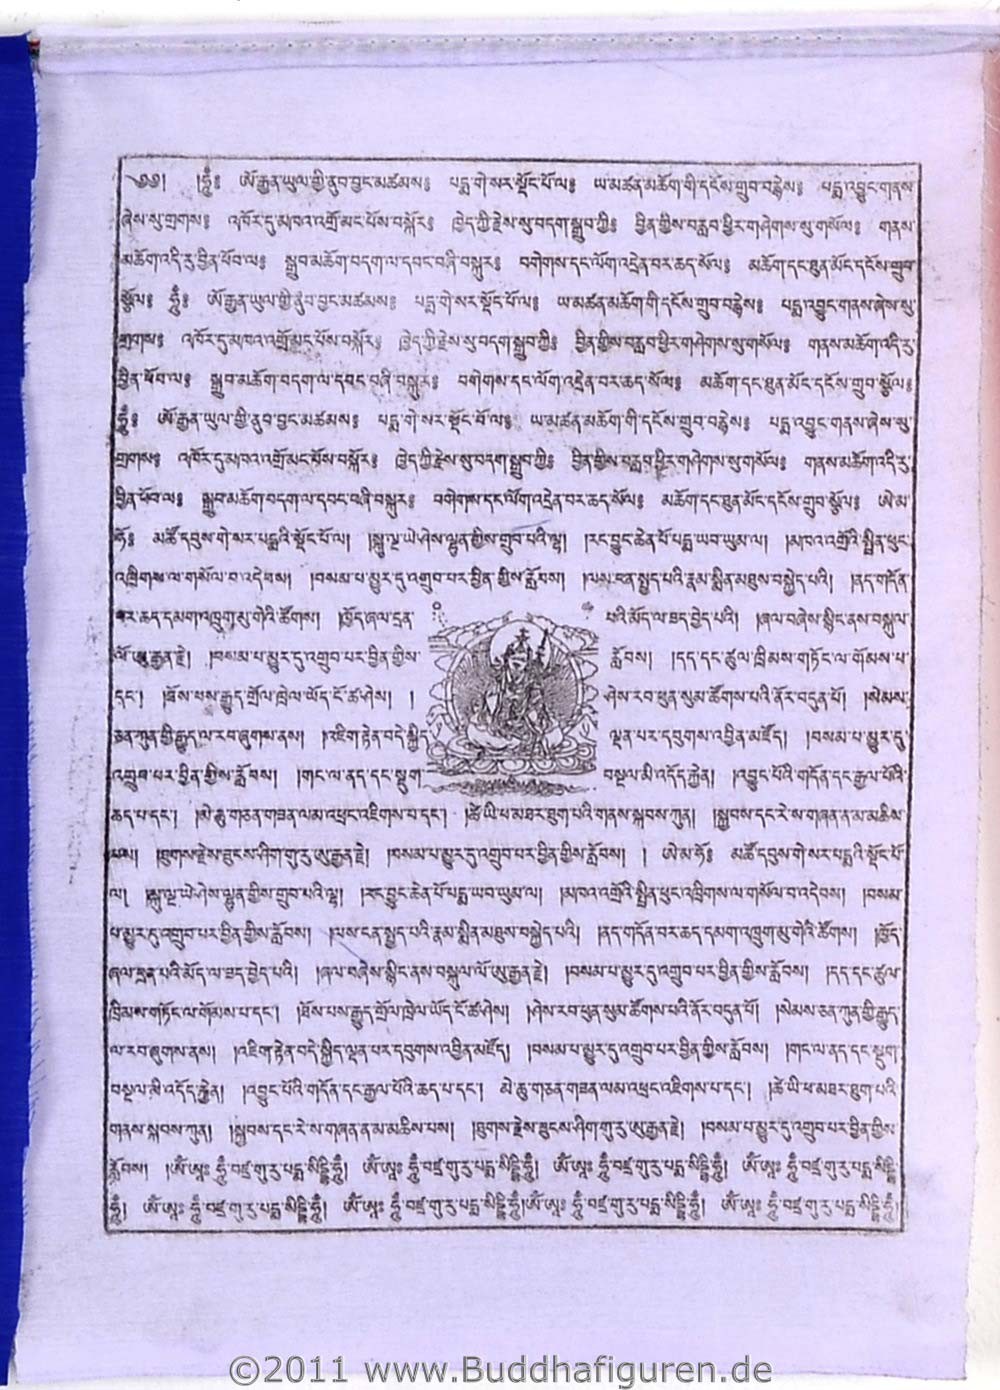 ༄༅། །ཧཱུྃ༔ ཨོ་རྒྱན་ཡུལ་གྱི་ནུབ་བྱང་མཚམས༔ པདྨ་གེ་སར་སྡོང་པོ་ལ༔ ཡ་མཚན་མཆོག་གི་དངོས་གྲུབ་བརྙེས༔ པདྨ་འབྱུང་གནས་
ཞེས་སུ་གྲགས༔ འཁོར་དུ་མཁའ་འགྲོ་མང་པོས་བསྐོར༔ ཁྱེད་ཀྱི་རྗེས་སུ་བདག་སྒྲུབ་ཀྱི༔ བྱིན་གྱིས་བརླབ་ཕྱིར་གཤེགས་སུ་གསོལ༔ གནས་
མཆོག་འདི་རུ་བྱིན་ཕོབ་ལ༔ སྒྲུབ་མཆོག་བདག་ལ་དབང་བཞི་བསྐུར༔ བགེགས་དང་ལོག་འདྲེན་བར་ཆད་སོལ༔ མཆོག་དང་ཐུན་མོང་དངོས་གྲུབ་
སྩོལ༔ ཧཱུྃ༔ ཨོ་རྒྱན་ཡུལ་གྱི་ནུབ་བྱང་མཚམས༔ པདྨ་གེ་སར་སྡོང་པོ་ལ༔ ཡ་མཚན་མཆོག་གི་དངོས་གྲུབ་བརྙེས༔ པདྨ་འབྱུང་གནས་ཞེས་སུ་
གྲགས༔ འཁོར་དུ་མཁའ་འགྲོ་མང་པོས་བསྐོར༔ ཁྱེད་ཀྱི་རྗེས་སུ་བདག་སྒྲུབ་ཀྱི༔ བྱིན་གྱིས་བརླབ་ཕྱིར་གཤེགས་སུ་གསོལ༔ གནས་མཆོག་འདི་རུ་
བྱིན་ཕོབ་ལ༔ སྒྲུབ་མཆོག་བདག་ལ་དབང་བཞི་བསྐུར༔ བགེགས་དང་ལོག་འདྲེན་བར་ཆད་སོལ༔ མཆོག་དང་ཐུན་མོང་དངོས་གྲུབ་སྩོལ༔
ཧཱུྃ༔ ཨོ་རྒྱན་ཡུལ་གྱི་ནུབ་བྱང་མཚམས༔ པདྨ་གེ་སར་སྡོང་པོ་ལ༔ ཡ་མཚན་མཆོག་གི་དངོས་གྲུབ་བརྙེས༔ པདྨ་འབྱུང་གནས་ཞེས་སུ་
གྲགས༔ འཁོར་དུ་མཁའ་འགྲོ་མང་པོས་བསྐོར༔ ཁྱེད་ཀྱི་རྗེས་སུ་བདག་སྒྲུབ་ཀྱི༔ བྱིན་གྱིས་བརླབ་ཕྱིར་གཤེགས་སུ་གསོལ༔ གནས་མཆོག་འདི་རུ་
བྱིན་ཕོབ་ལ༔ སྒྲུབ་མཆོག་བདག་ལ་དབང་བཞི་བསྐུར༔ བགེགས་དང་ལོག་འདྲེན་བར་ཆད་སོལ༔ མཆོག་དང་ཐུན་མོང་དངོས་གྲུབ་སྩོལ༔ ཨེ་མ་
ཧོ༔ མཚོ་དབུས་གེ་སར་པདྨའི་སྡོང་པོ་ལ། །སྐུ་ལྔ་ཡེ་ཤེས་ལྷུན་གྱིས་གྲུབ་པའི་ལྷ། །རང་བྱུང་ཆེན་པོ་པདྨ་ཡབ་ཡུམ་ལ། །མཁའ་འགྲོའི་སྤྲིན་ཕུང་
འཁྲིགས་ལ་གསོལ་བ་འདེབས། །བསམ་པ་མྱུར་དུ་འགྲུབ་པར་བྱིན་གྱིས་རློབས། །ལས་ངན་སྤྱད་པའི་རྣམ་སྨིན་མཐུས་བསྐྱེད་པའི། །ནད་གདོན་
བར་ཆད་དམག་འཁྲུག་མུ་གེའི་ཚོགས། །ཁྱོད་ཞལ་དྲན་པའི་མོད་ལ་ཟད་བྱེད་པའི། །ཞལ་བཞེས་སྙིང་ནས་བསྐུལ་
ལོ་ཨུ་རྒྱན་རྗེ། །བསམ་པ་མྱུར་དུ་འགྲུབ་པར་བྱིན་གྱིས་རློབས། །དད་དང་ཚུལ་ཁྲིམས་གཏོང་ལ་གོམས་པ་
དང་། །ཐོས་པས་རྒྱུད་གྲོལ་ཁྲེལ་ཡོད་ངོ་ཚ་ཤེས། །ཤེས་རབ་ཕུན་སུམ་ཚོགས་པའི་ནོར་བདུན་པོ། །སེམས་
ཅན་ཀུན་གྱི་རྒྱུད་ལ་རབ་ཞུགས་ནས། །འཇིག་རྟེན་བདེ་སྐྱིད་ལྡན་པར་དབུགས་འབྱིན་མཛོད། །བསམ་པ་མྱུར་དུ་
འགྲུབ་པར་བྱིན་གྱིས་རློབས། །གང་ལ་ནད་དང་སྡུག་བསྔལ་མི་འདོད་རྐྱེན། །འབྱུང་པོའི་གདོན་དང་རྒྱལ་པོའི་
ཆད་པ་དང་། །མེ་ཆུ་གཅན་གཟན་ལམ་འཕྲང་འཇིགས་པ་དང་། །ཚེ་ཡི་ཕ་མཐར་ཐུག་པའི་གནས་སྐབས་ཀུན། །སྐྱབས་དང་རེ་ས་གཞན་ན་མ་མཆིས་
པས། །ཐུགས་རྗེས་ཟུངས་ཤིག་གུ་རུ་ཨུ་རྒྱན་རྗེ། །བསམ་པ་མྱུར་དུ་འགྲུབ་པར་བྱིན་གྱིས་རློབས། ། ཨེ་མ་ཧོ༔ མཚོ་དབུས་གེ་སར་པདྨའི་སྡོང་པོ་
ལ། །སྐུ་ལྔ་ཡེ་ཤེས་ལྷུན་གྱིས་གྲུབ་པའི་ལྷ། །རང་བྱུང་ཆེན་པོ་པདྨ་ཡབ་ཡུམ་ལ། །མཁའ་འགྲོའི་སྤྲིན་ཕུང་འཁྲིགས་ལ་གསོལ་བ་འདེབས། །བསམ་
པ་མྱུར་དུ་འགྲུབ་པར་བྱིན་གྱིས་རློབས། །ལས་ངན་སྤྱད་པའི་རྣམ་སྨིན་མཐུས་བསྐྱེད་པའི། །ནད་གདོན་བར་ཆད་དམག་འཁྲུག་མུ་གེའི་ཚོགས། །ཁྱོད་
ཞལ་དྲན་པའི་མོད་ལ་ཟད་བྱེད་པའི། །ཞལ་བཞེས་སྙིང་ནས་བསྐུལ་ལོ་ཨུ་རྒྱན་རྗེ། །བསམ་པ་མྱུར་དུ་འགྲུབ་པར་བྱིན་གྱིས་རློབས། །དད་དང་ཚུལ་
ཁྲིམས་གཏོང་ལ་གོམས་པ་དང་། །ཐོས་པས་རྒྱུད་གྲོལ་ཁྲེལ་ཡོད་ངོ་ཚ་ཤེས། །ཤེས་རབ་ཕུན་སུམ་ཚོགས་པའི་ནོར་བདུན་པོ། །སེམས་ཅན་ཀུན་གྱི་རྒྱུད་
ལ་རབ་ཞུགས་ནས། །འཇིག་རྟེན་བདེ་སྐྱིད་ལྡན་པར་དབུགས་འབྱིན་མཛོད། །བསམ་པ་མྱུར་དུ་འགྲུབ་པར་བྱིན་གྱིས་རློབས། །གང་ལ་ནད་དང་སྡུག་
བསྔལ་མི་འདོད་རྐྱེན། །འབྱུང་པོའི་གདོན་དང་རྒྱལ་པོའི་ཆད་པ་དང་། མེ་ཆུ་གཅན་གཟན་ལམ་འཕྲང་འཇིགས་པ་དང་། །ཚེ་ཡི་ཕ་མཐར་ཐུག་པའི་
གནས་སྐབས་ཀུན། །སྐྱབས་དང་རེ་ས་གཞན་ན་མ་མཆིས་པས། །ཐུགས་རྗེས་ཟུངས་ཤིག་གུ་རུ་ཨུ་རྒྱན་རྗེ། །བསམ་པ་མྱུར་དུ་འགྲུབ་པར་བྱིན་གྱིས་
རློབས། །ཨོཾ་ཨཱཿ ཧཱུྃ་བཛྲ་གུ་རུ་པདྨ་སིདྡྷི་ཧཱུྃ། ཨོཾ་ཨཱཿ ཧཱུྃ་བཛྲ་གུ་རུ་པདྨ་སིདྡྷི་ཧཱུྃ། ཨོཾ་ཨཱཿ ཧཱུྃ་བཛྲ་གུ་རུ་པདྨ་སིདྡྷི་ཧཱུྃ། ཨོཾ་ཨཱཿ ཧཱུྃ་བཛྲ་གུ་རུ་པདྨ་སིདྡྷི་
ཧཱུྃ། ཨོཾ་ཨཱཿ ཧཱུྃ་བཛྲ་གུ་རུ་པདྨ་སིདྡྷི་ཧཱུྃ། ཨོཾ་ཨཱཿ ཧཱུྃ་བཛྲ་གུ་རུ་པདྨ་སིདྡྷི་ཧཱུྃ། ཨོཾ་ཨཱཿ ཧཱུྃ་བཛྲ་གུ་རུ་པདྨ་སིདྡྷི་ཧཱུྃ། ཨོཾ་ཨཱཿ ཧཱུྃ་བཛྲ་གུ་རུ་པདྨ་སིདྡྷི་ཧཱུྃ།
©2011 www.Buddhafiguren.de